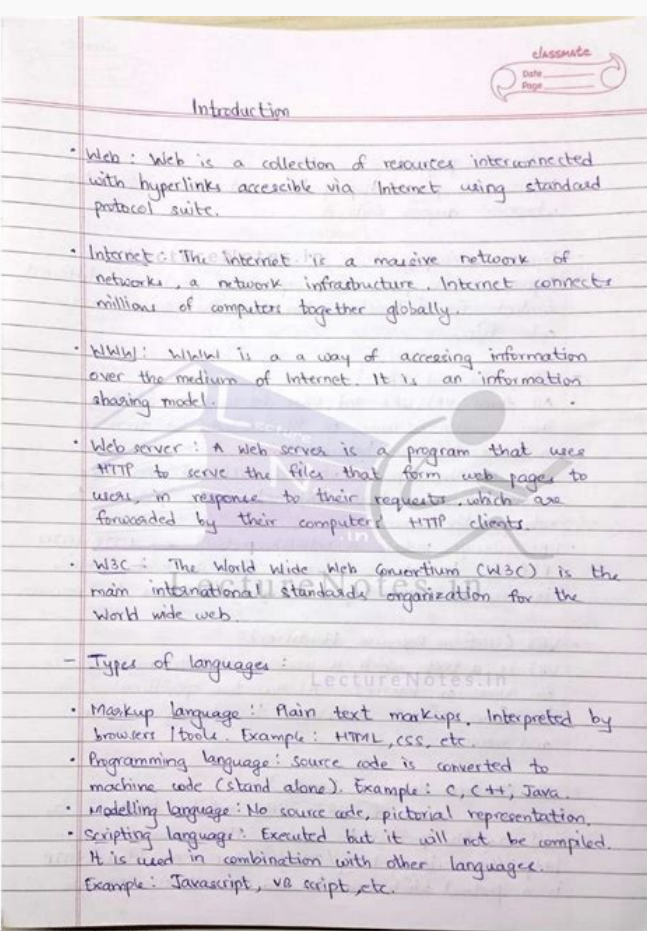 classmate
Date
Page
Introduction
• Web : Web is a collection of resources interconnected
with hyperlinks accescible via Internet using standard
protocol suite.
• Internet : The internet is a massive network of
networks, a network infrastructure. Internet connects
millions of computers together globally.
• WWW : WWW is a a way of accessing information
over the medium of Internet. It is an information
sharing model.
• Web server : A web server is a program that uses
HTTP to serve the files that form web pages to
users, in response to their requests, which are
forwarded by their computers' HTTP clients.
• W3C : The World Wide Web Consortium (W3C) is the
main international standards organization for the
World wide web.
LectureNotes.in
– Types of languages :
LectureNotes.in
• Markup language : Plain text markups. Interpreted by
browsers / tools. Example : HTML, CSS, etc.
• Programming language : source code is converted to
machine code (stand alone). Example : C, C++, Java.
• Modelling language : No source code, pictorial representation.
• Scripting language : Executed but it will not be compiled.
It is used in combination with other languages.
Example : Javascript, VB script, etc.